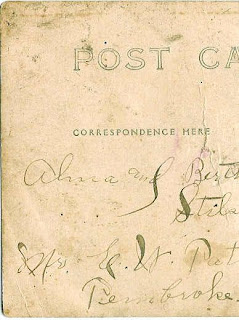 POST CA
CORRESPONDENCE HERE
Alma and Bert
Stils
Mrs. E. W. Pat
Pembroke